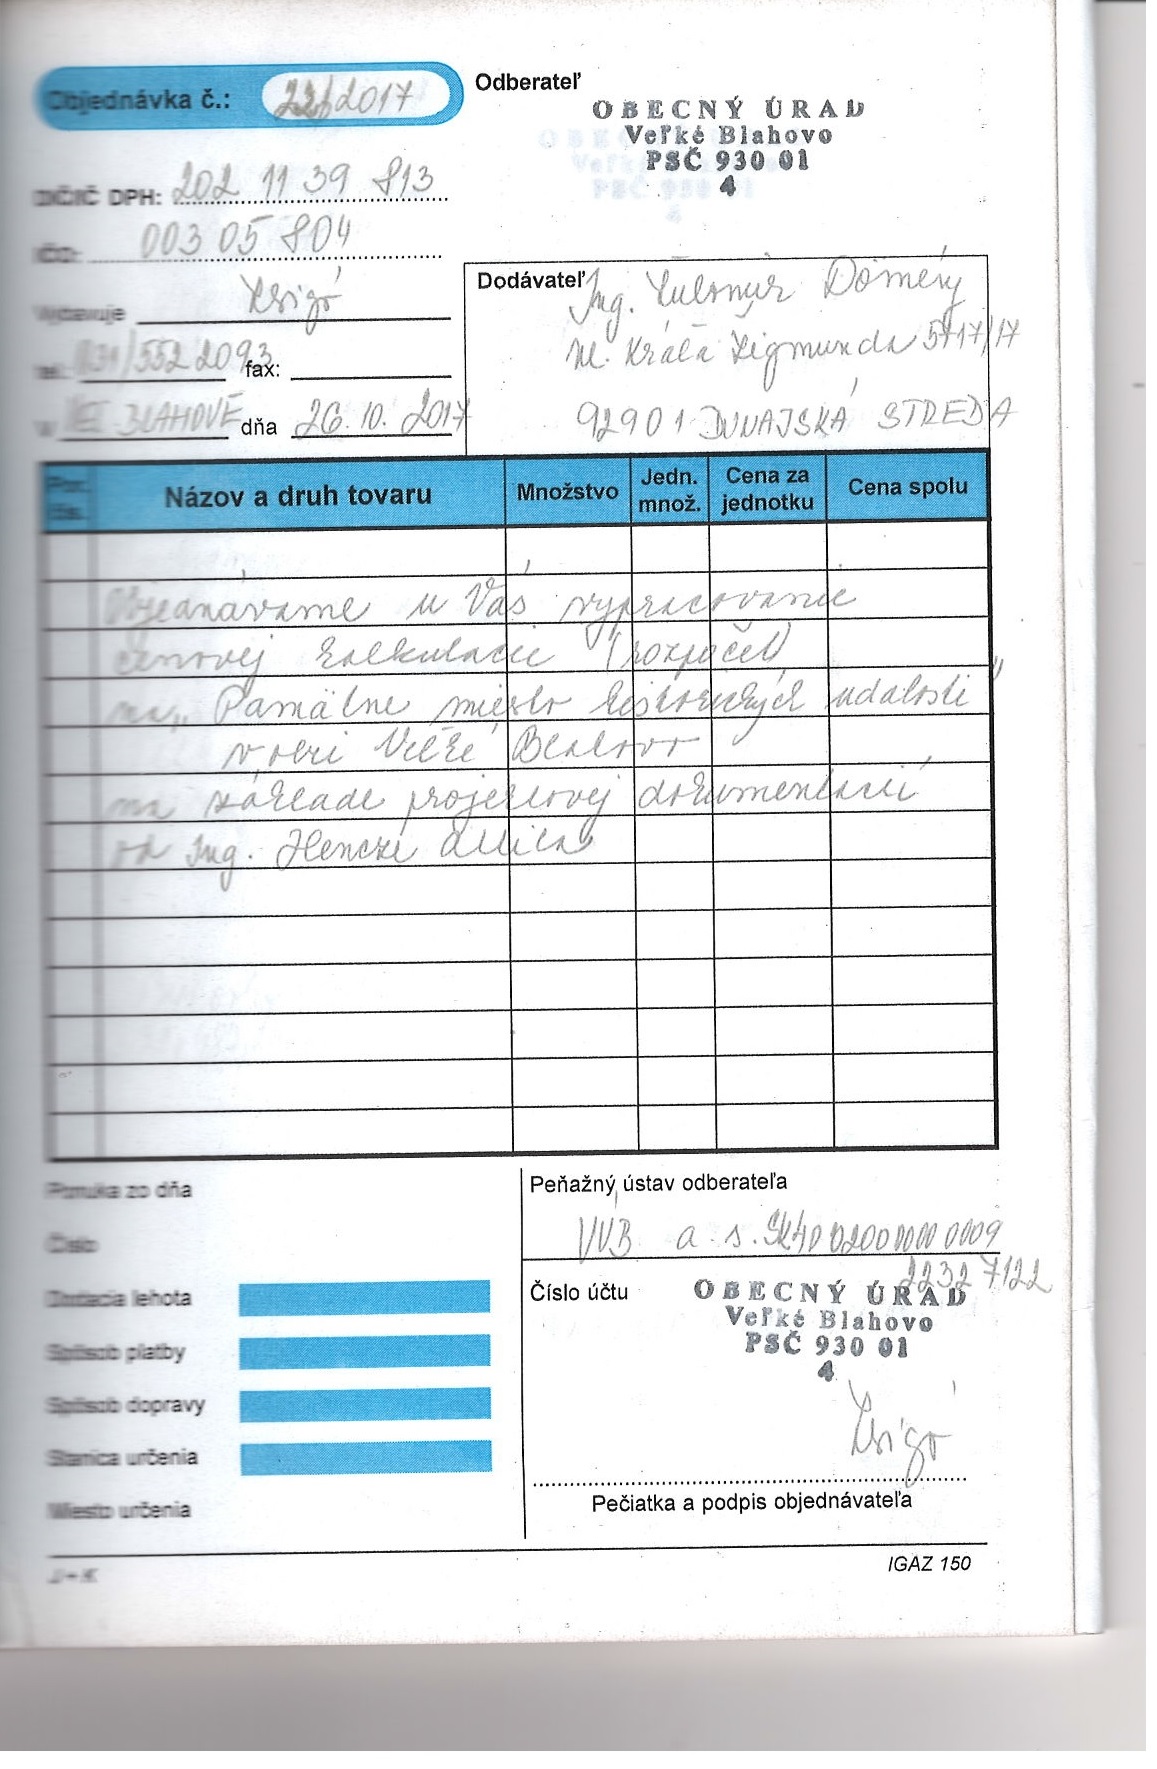 Objednávka č.: 22/2017
Odberateľ
OBECNÝ ÚRAD
Veľké Blahovo
PSČ 930 01
4
DIČ/IČ DPH: 202 11 39 813
IČO: 003 05 804
Vystavuje Zsigó
tel. 031/552 2093 fax:
V VEĽ. BLAHOVE dňa 26. 10. 2017
Dodávateľ Ing. Ľubomír Dömény
nl. Kráľa Žigmunda 5717/17
92901 DUNAJSKÁ STREDA
Por. čís. Názov a druh tovaru Množstvo Jedn. množ. Cena za jednotku Cena spolu
Objednávame u Vás vypracovanie
cenovej kalkulácie (rozpočet)
na „Pamätné miesto historických udalostí"
v obci Veľké Blahovo
na základe projektovej dokumentácii
od Ing. Henczi Attila
Ponuka zo dňa
Číslo
Dodacia lehota
Spôsob platby
Spôsob dopravy
Stanica určenia
Miesto určenia
Peňažný ústav odberateľa
VÚB a.s. SK40 0200 0000 0009
2232 7122
Číslo účtu
OBECNÝ ÚRAD
Veľké Blahovo
PSČ 930 01
4
Zsigó
Pečiatka a podpis objednávateľa
J+K
IGAZ 150